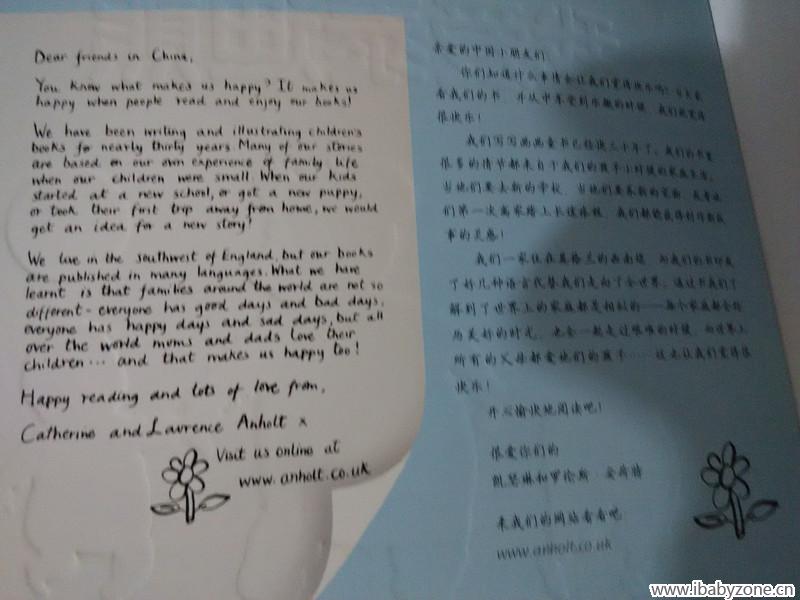 Dear friends in China,
You know what makes us happy? It makes us
happy when people read and enjoy our books!
We have been writing and illustrating children's
books for nearly thirty years. Many of our stories
are based on our own experience of family life
when our children were small. When our kids
started at a new school, or got a new puppy,
or took their first trip away from home, we would
get an idea for a new story!
We live in the southwest of England, but our books
are published in many languages. What we have
learnt is that families around the world are not so
different - everyone has good days and bad days,
everyone has happy days and sad days, but all
over the world moms and dads love their
children... and that makes us happy too!
Happy reading and lots of love from,
Catherine and Laurence Anholt x
Visit us online at
www.anholt.co.uk
亲爱的中国小朋友们
你们知道什么事情会让我们觉得快乐吗？当大家
看我们的书，并从中享受到乐趣的时候，我们就觉得
很快乐！
我们写写画画童书已经快三十年了。我们的书里
很多的情节都来自于我们的孩子小时候的家庭生活。
当他们要去新的学校，当他们要养新的宠物，或者他
们第一次离家踏上长途旅程，我们都能获得创作新故
事的灵感！
我们一家住在英格兰的西南边，而我们的书印成
了好几种语言代替我们走向了全世界。通过书我们了
解到了世界上的家庭都是相似的——每个家庭都会经
历美好的时光，也会一起走过艰难的时候，而世界上
所有的父母都爱他们的孩子……这也让我们觉得很
快乐！
开心愉快地阅读吧！
很爱你们的
凯瑟琳和罗伦斯·安荷特
来我们的网站看看吧
www.anholt.co.uk
www.ibabyzone.cn